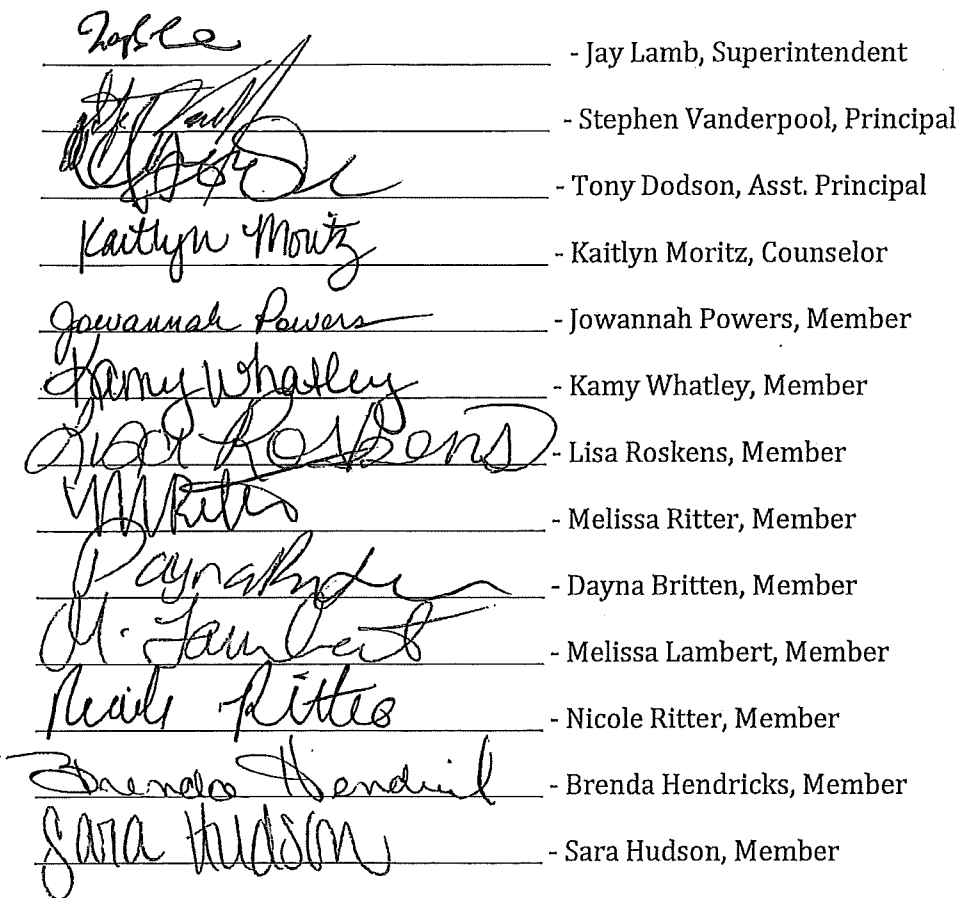 - Jay Lamb, Superintendent
- Stephen Vanderpool, Principal
- Tony Dodson, Asst. Principal
Kaitlyn Moritz - Kaitlyn Moritz, Counselor
Jowannah Powers - Jowannah Powers, Member
Kamy Whatley - Kamy Whatley, Member
Lisa Roskens - Lisa Roskens, Member
M Ritter - Melissa Ritter, Member
Dayna Britten - Dayna Britten, Member
M. Lambert - Melissa Lambert, Member
Nicole Ritter - Nicole Ritter, Member
Brenda Hendricks - Brenda Hendricks, Member
Sara Hudson - Sara Hudson, Member